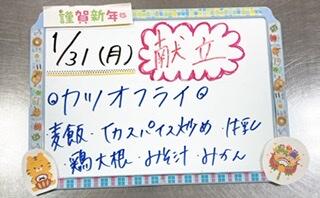 謹賀新年
1/31(月)
献立
◎カツオフライ◎
麦飯・イカスパイス炒め・牛乳
・鶏大根・みそ汁・みかん